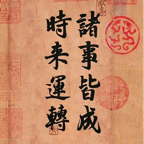 諸事皆成
時来運轉